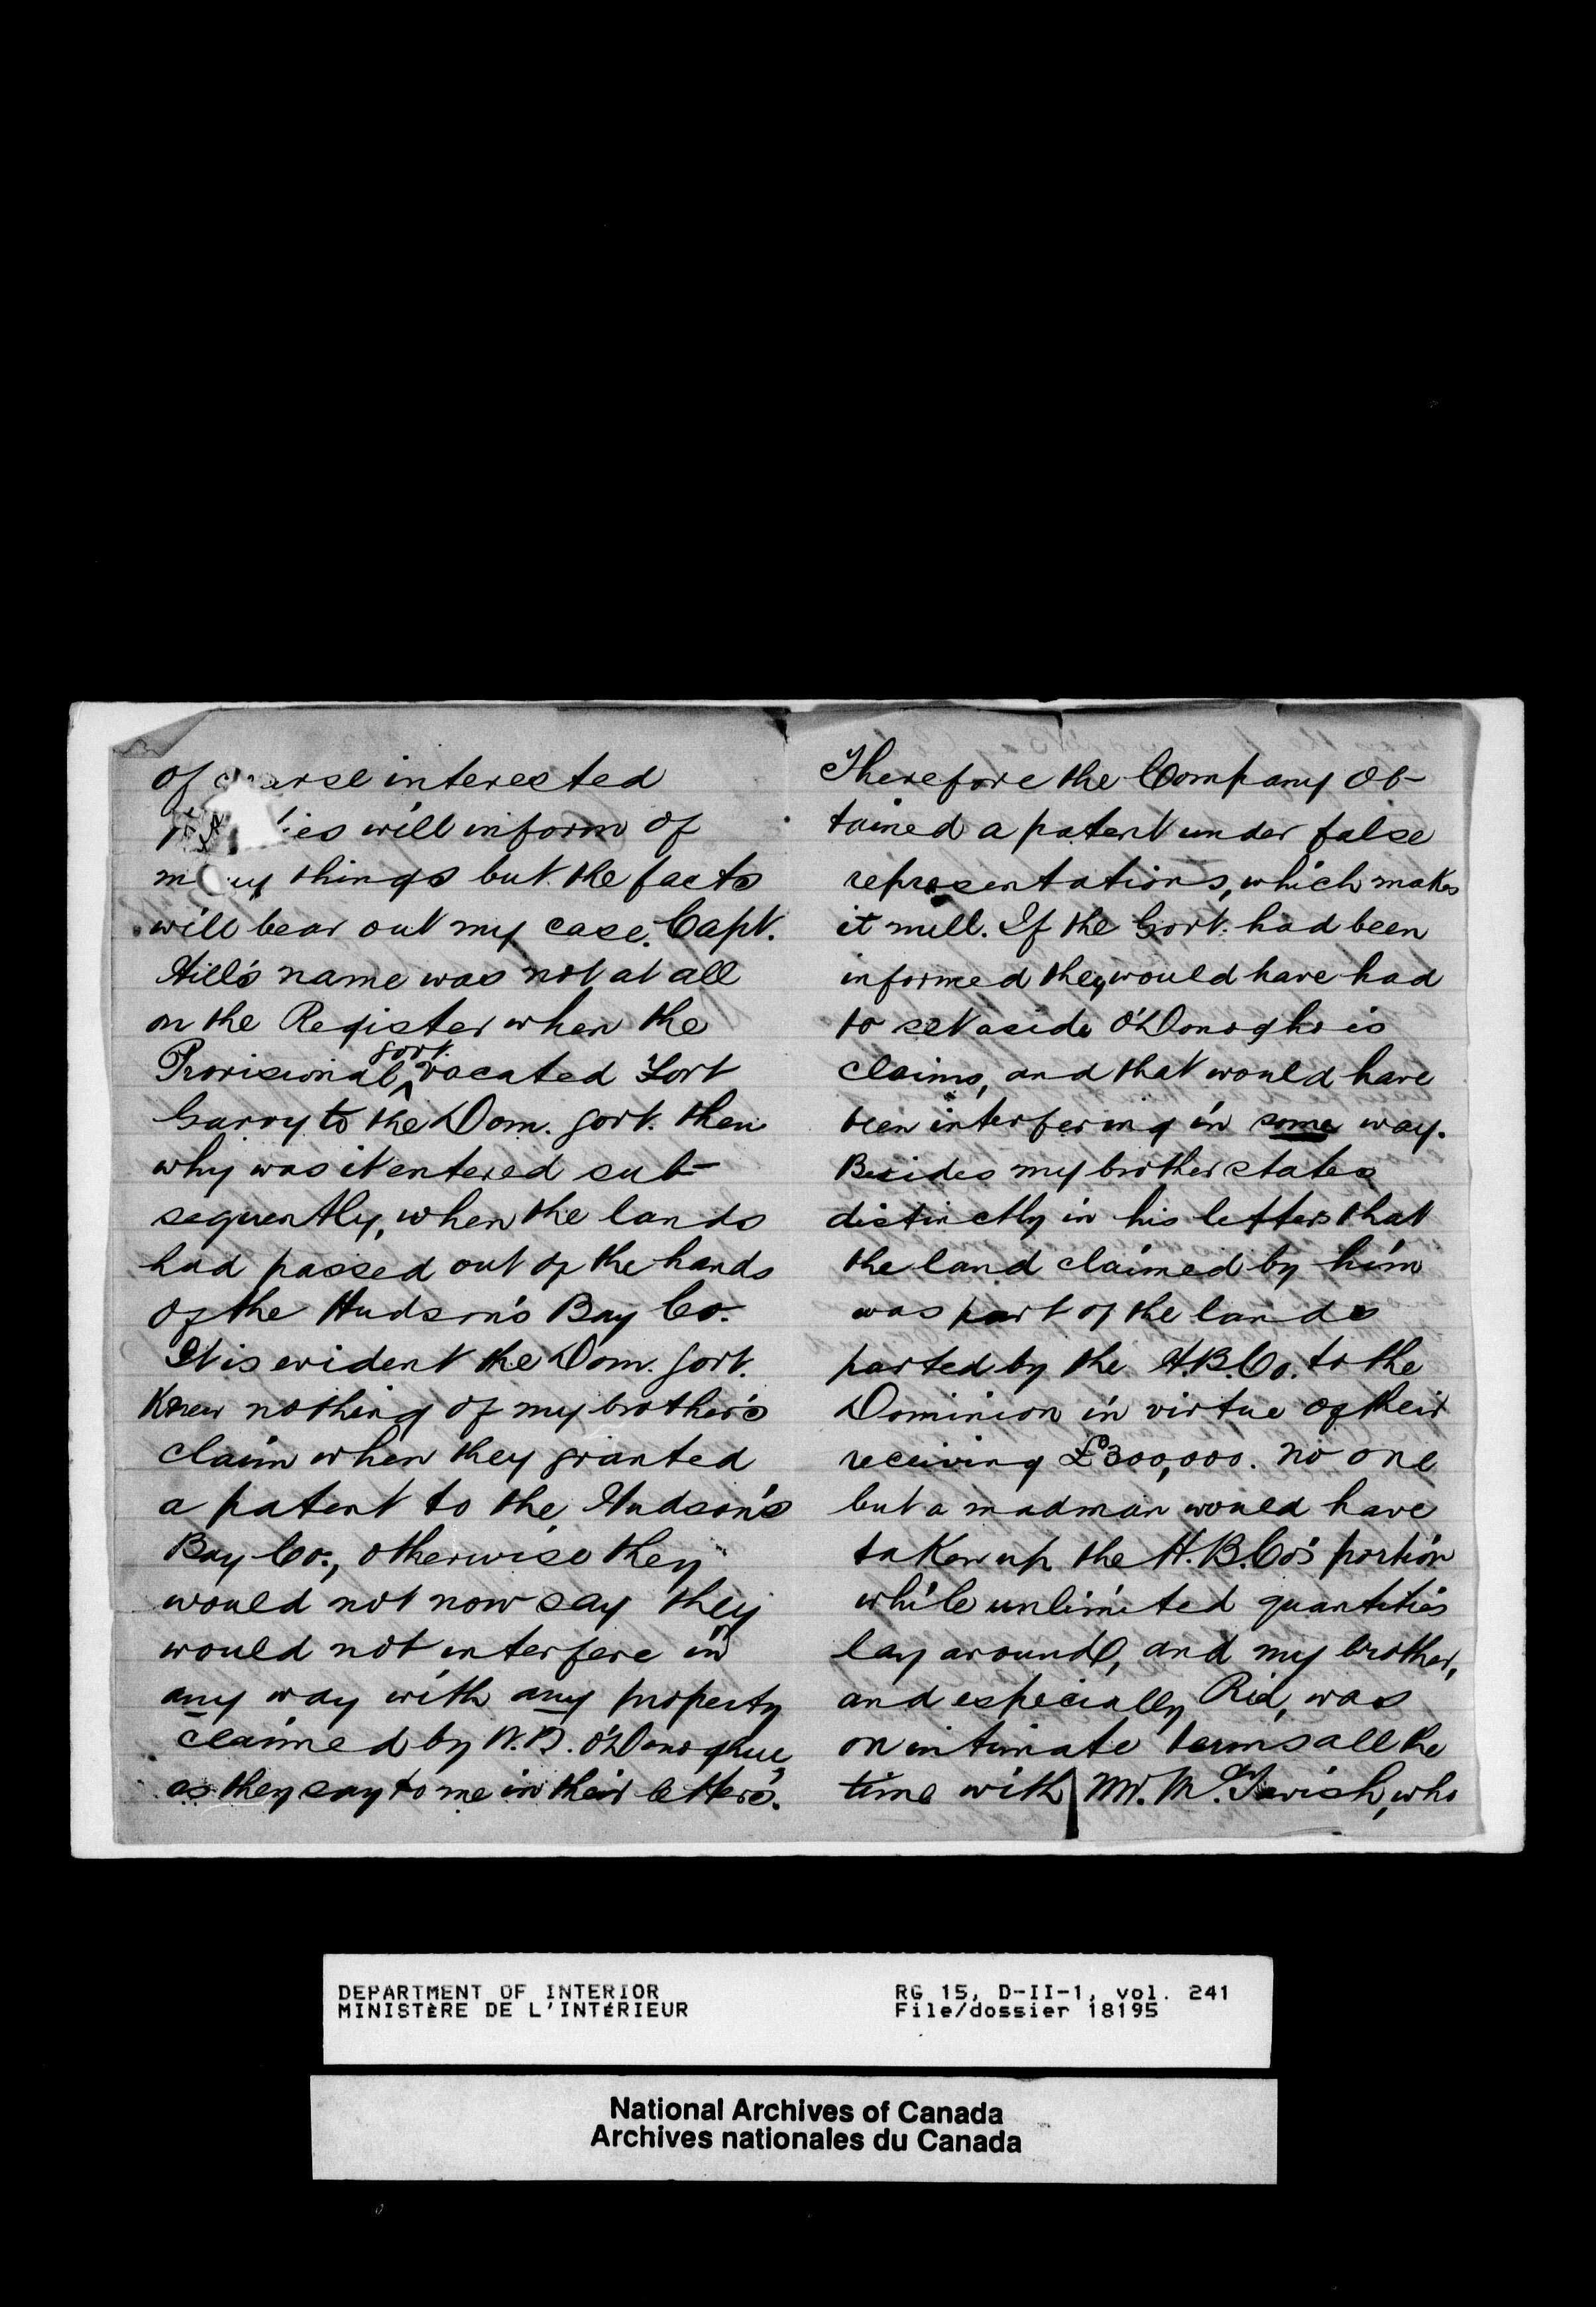 of course interested
parties will inform of
many things but the facts
will bear out my case. Capt.
Hill's name was not at all
on the Register when the
Provisional govt. vacated Fort
Garry to the Dom. govt. then
why was it entered sub-
sequently, when the lands
had passed out of the hands
of the Hudson's Bay Co.
It is evident the Dom. govt.
knew nothing of my brother's
claim when they granted
a patent to the Hudson's
Bay Co., otherwise they
would not now say they
would not interfere in
any way with any property
claimed by W.B. O'Donoghue,
as they say to me in their letters.
Therefore the Company ob-
tained a patent under false
representations, which makes
it null. If the Govt. had been
informed they would have had
to set aside O'Donoghoe's
claims, and that would have
been interfering in some way.
Besides my brother states
distinctly in his letters that
the land claimed by him
was part of the lands
parted by the H.B.Co. to the
Dominion in virtue of their
receiving £300,000. no one
but a madman would have
taken up the H.B.Co's portion
while unlimited quantities
lay around, and my brother,
and especially Riel, was
on intimate terms all the
time with Mr. McTavish, who
DEPARTMENT OF INTERIOR
MINISTÈRE DE L'INTÉRIEUR
RG 15, D-II-1, vol. 241
File/dossier 18195
National Archives of Canada
Archives nationales du Canada